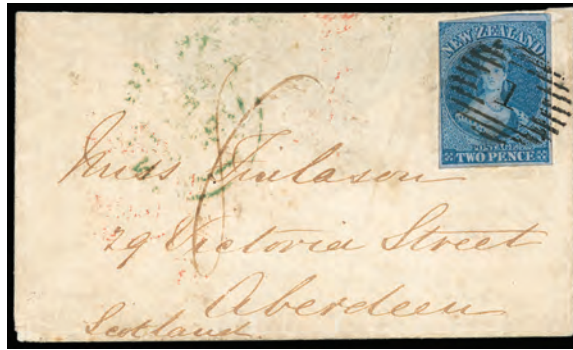 NEW ZEALAND
1
POSTAGE
TWO PENCE
6
Miss Finlason
29 Victoria Street
Aberdeen
Scotland.